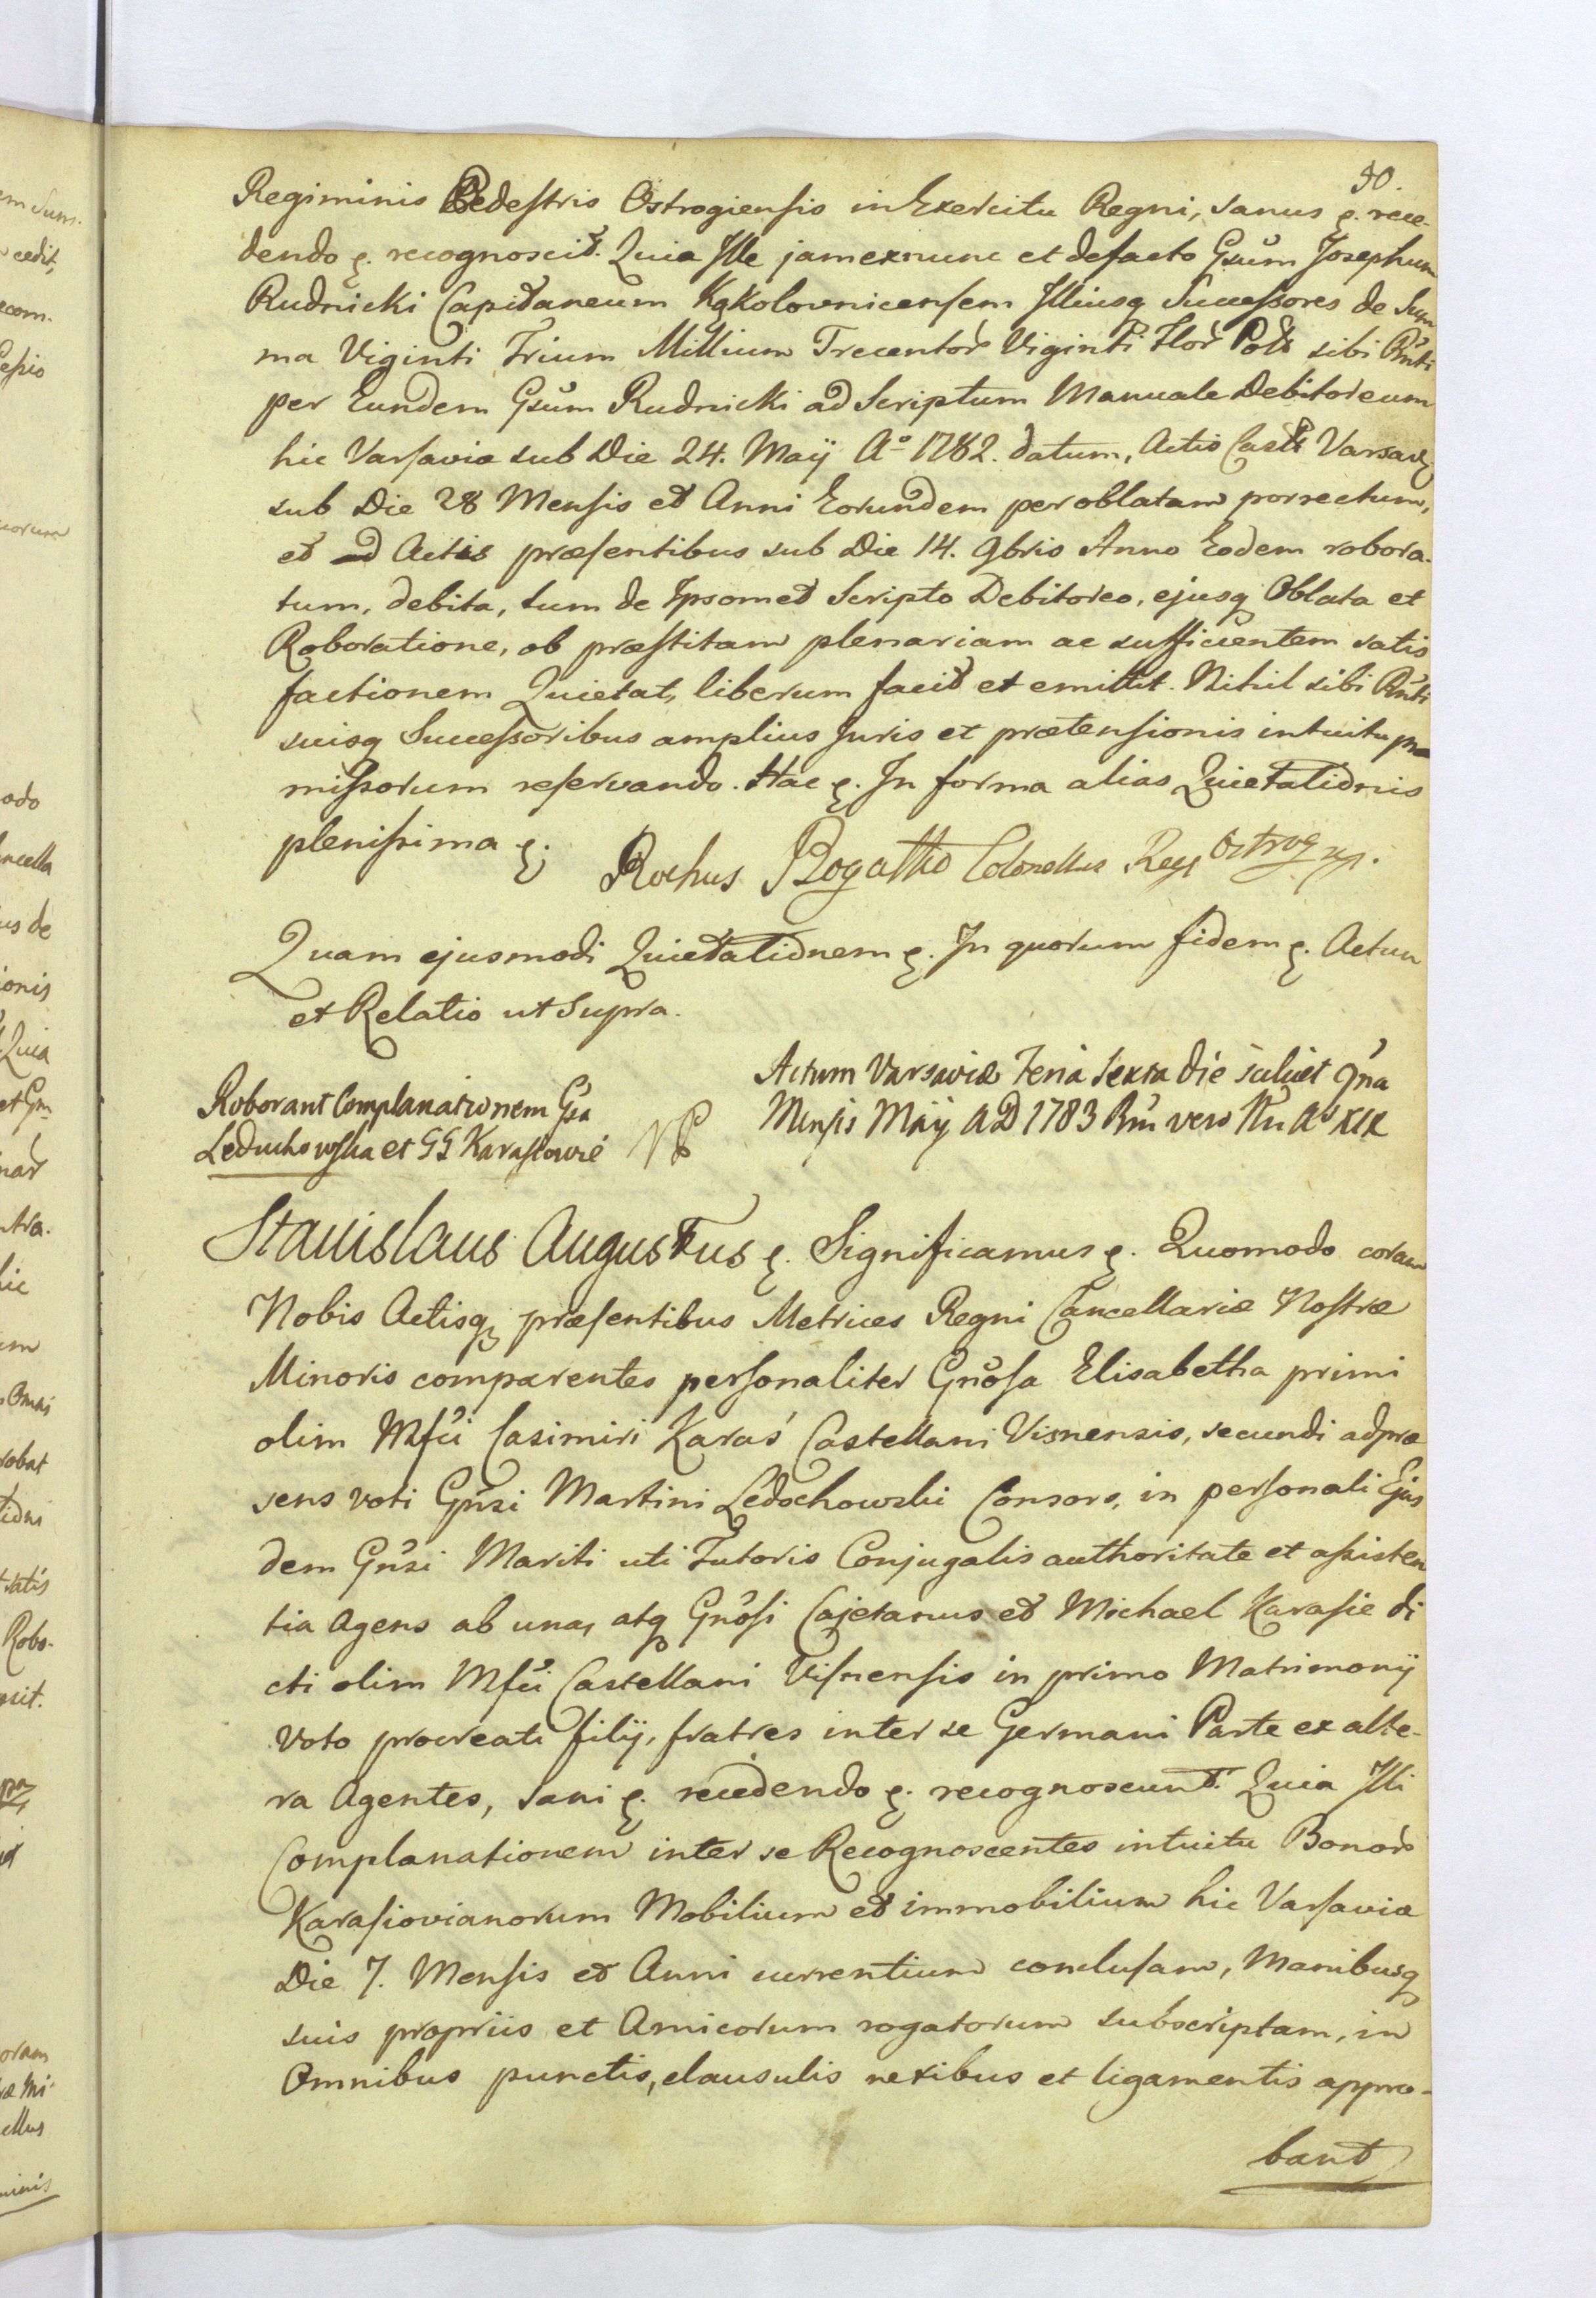 30.
Regiminis Pedestris Ostrogiensis in Exercitu Regni, sanus ę. rece-
dendo ę. recognoscit. Quia Ille jam ex nunc et defacto Gsum Josephum
Rudnicki Capitaneum Kąkolovnicensem Illiusq Successores de Sum
ma Viginti Trium Millium Trecentor Viginti Flor Pol sibi Pnti
per Eundem Gsum Rudnicki ad Scriptum Manuale Debitoreum
hic Varsaviæ sub Die 24. Maÿ Aº 1782. datum, Actis Castr Varsav
sub Die 28 Mensis et Anni Eorundem per oblatam porrectum,
et ad Actis præsentibus sub Die 14. 9bris Anno Eodem robora-
tum, debita, tum de Ipsomet Scripto Debitoreo, ejusq Oblata et
Roboratione, ob præstitam plenariam ac sufficientem satis
factionem Quietat, liberum facit et emittit. Nihil sibi Pnti
suisq Successoribus amplius Juris et prætensionis intuitu præ
missorum reservando. Hac ę. In forma alias Quietationis
plenissima ę.
Rochus Bogatko Colonellus Reg Ostrog
Quam ejusmodi Quietationem ę. In quorum fidem ę. Actum
et Relatio ut Supra.
Roborant Complanationem Gsa
Leduchowska et GG Karasiowie
Actum Varsaviæ Feria Sexta die scilicet 9na
Mensis Maÿ AD 1783 Rni vero Nri Aº XIX
Stanislaus Augustus ę. Significamus ę. Quomodo coram
Nobis Actisq præsentibus Metrices Regni Cancellariæ Nostræ
Minoris comparentes personaliter Gnosa Elisabetha primi
olim Mfci Casimiri Karaś Castellani Visnensis, secundi ad præ
sens voti Gnsi Martini Ledochowski Consors, in personali Ejus
dem Gnsi Mariti uti Tutoris Conjugalis authoritate et assisten
tia Agens ab una, atq Gnosi Cajetanus et Michael Karasie di
cti olim Mfci Castellani Visnensis in primo Matrimonÿ
voto procreati filÿ, fratres inter se Germani Parte ex alte-
ra Agentes, Sani ę. recedendo ę. recognoscunt. Quia Illi
Complanationem inter se Recognoscentes intuitu Bonor
Karasiovianorum Mobilium et immobilium hic Varsaviæ
Die 7. Mensis et Anni currentium conclusam, Manibusq
suis propriis et Amicorum rogatorum subscriptam, in
Omnibus punctis, clausulis nexibus et ligamentis appro-
bant